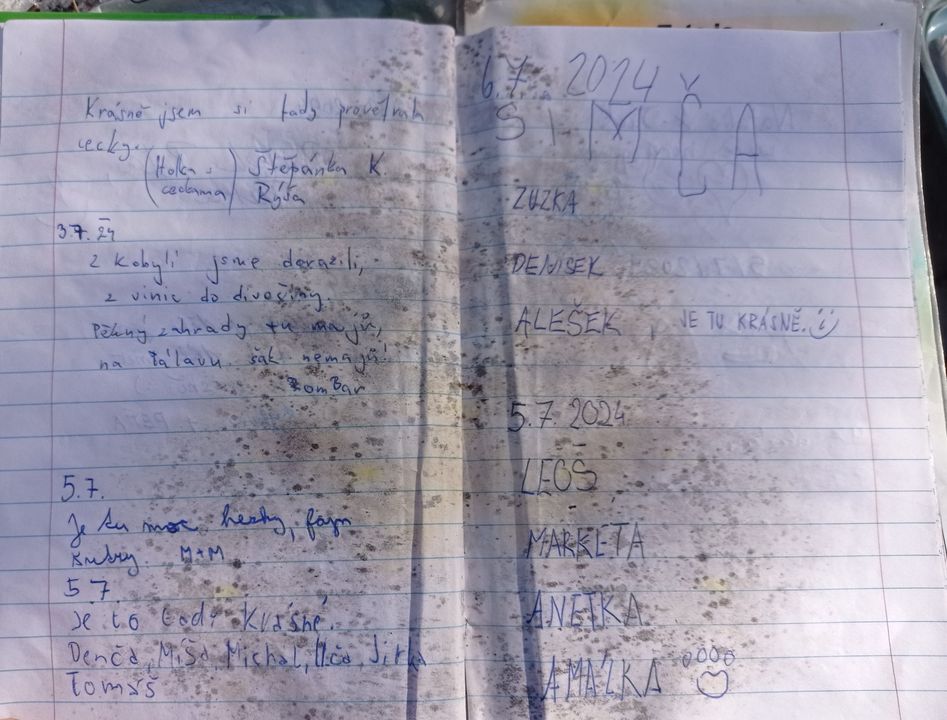 Krásně jsem si tady provětrala
cecky.
(Holka s
ceckama)
Štěpánka K
Rýša
3.7. 24
z Kobylí jsme dorazili,
z vinic do divočiny.
Pěkný zahrady tu majů,
na Pálavu šak nemajů!
TomBar
5.7.
Je tu moc hezky, fajn
M+M
5.7.
Je to tady krásné.
Denča, Míša, Michal, Jirka
Tomáš
6.7. 2024
SIMČA
ZUZKA
DENISEK
ALEŠEK, JE TU KRÁSNĚ.
5.7. 2024
LEOŠ
MARKETA
ANETKA
AMÁLKA